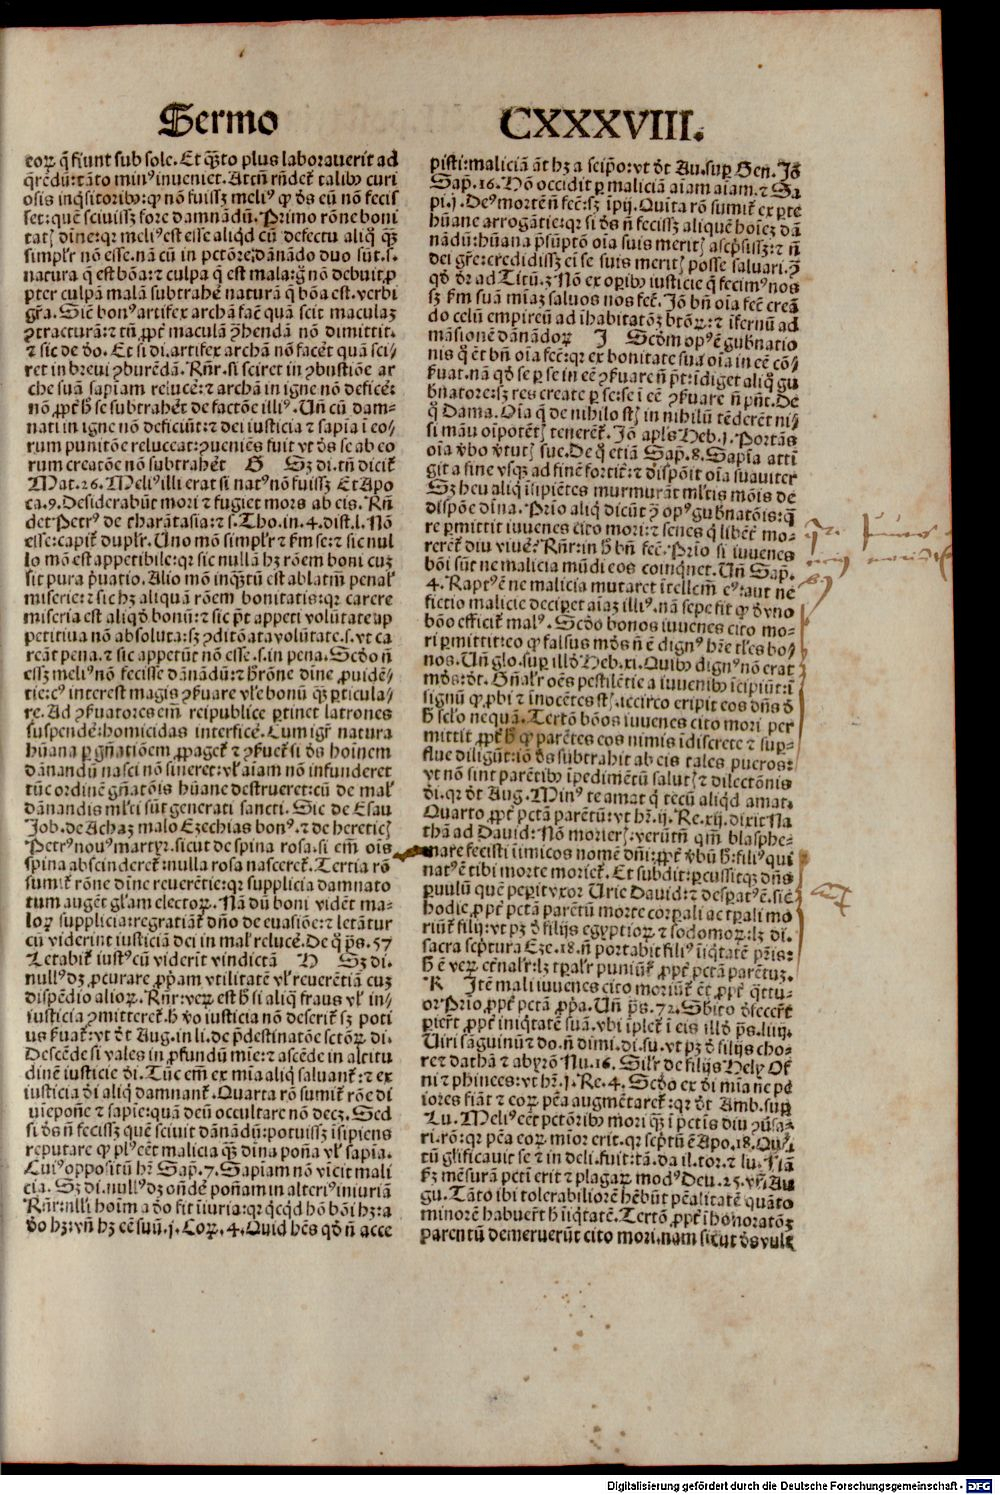 Sermo CXXXVIII.
eoꝝ q̄ fiunt sub sole. Et q̄ꝫto plus laborauerit ad
q̄rēdū: tāto minꝰ inueniet. Attn̄ rn̄det̉ talibꝰ curi
osis inq̄sitoribꝰ: ꝙ nō fuissꝫ meliꝰ ꝙ d̄s eū nō fecis
set: quē sciuissꝫ fore damnādū. Primo rōne boni
tatꝭ dīne: qꝛ meliꝰ est esse aliqd̄ cū defectu aliq̄ q̄ꝫ
simplr̄ nō esse. nā cū in pctōre dānādo duo sūt. s.
natura q̄ est bōa: ⁊ culpa q̄ est mala: gͦ nō debuit ꝓ
pter culpā malā subtrahe̓ naturā q̄ bōa est. verbi
gr̄a. Sic̄ bonꝰ artifex archā fac̄ quā scit maculaꝫ
ꝯtracturā: ⁊ tn̄ ꝓpt̓ maculā ꝯhendā nō dimittit.
⁊ sic de ꝺo. Et si di. artifex archā nō facet quā sci/
ret in breui ꝯburēdā. Rn̄r. si sciret in ꝯbustiōe ar
che suā sapiam reluce̓: ⁊ archā in igne nō defice̓:
nō ꝓpt̓ h̄ se subtrahe̓t de factōe illiꝰ. Un̄ cū dam-
nati in igne nō deficiūt: ⁊ dei iusticia ⁊ sapia ī eo/
rum punitōe reluceat: ꝯueniēs fuit vt d̄s se ab eo
rum creatōne nō subtrahe̓t G Sꝫ di. tn̄ dicit̉
Mat. 26. Meliꝰ illi erat si natꝰ nō fuissꝫ Et Apo
ca. 9. Desiderabūt mori ⁊ fugiet mors ab eis. Rn̄
det Petrꝰ de tharātasia: ⁊ s. Tho. in. 4. dist. l. Nō
esse: capit̉ duplr̄. Uno mō simplr̄ ⁊ ẜm se: ⁊ sic nul
lo mō est appetibile: qꝛ sic nullā hꝫ rōem boni cuꝫ
sit pura p̓uatio. Alio mō inq̄ꝫtū est ablatiuū penal̓
miserie: ⁊ sic hꝫ aliquā rōem bonitatis: qꝛ carere
miseria est aliqd̄ bonū: ⁊ sic p̄t appeti volūtate ap
petitiua nō absoluta: sꝫ ꝯditōata volūtate. s. vt ca
reāt pena. ⁊ sic appetūt nō esse. s. in pena. Scd̄o n̄
essꝫ meliꝰ nō fecisse dānādū: ⁊ h̄ rōne dīne ꝓuidē/
tie: cꝰ interest magis ꝯẜuare vl̓e bonū q̄ꝫ ꝑticula/
re. Ad ꝯẜuatores em̄ reipublice ꝑtinet latrones
suspende̓: homicidas interfice̓. Cum igr̄ natura
hūana ꝑ gn̄atiōem ꝓpaget̉ ⁊ ꝯẜuet̉ si d̄s hoīem
dānandū nasci nō sineret: vl̓ aīam nō infunderet
tūc ordinē gn̄atōis hūane destrueret: cū de mal̓
dānandis ml̓ti sūt generati sancti. Sic de Esau
Job. de Achaz malo Ezechias bonꝰ. ⁊ de hereticꝭ
Petrꝰ nouꝰ martyr. sicut de spina rosa. si em̄ oīs
spina abscinderet̉: nulla rosa nasceret̉. Tertia rō
sumit̉ rōne dīne reuerētie: qꝛ supplicia damnato
tum auge̓t gl̓am electoꝝ. Nā dū boni vidēt ma-
loꝝ supplicia: regratiāt̉ dn̄o de euasiōe: ⁊ letātur
cū viderint iusticiā dei in mal̓ reluce̓. De q̄ p̄s. 57
Letabit̉ iustꝰ cū viderit vindictā H Sꝫ di.
nullꝰ dꝫ ꝓcurare ꝓp̓am vtilitatē vl̓ reuerētiā cuꝫ
dispēdio alioꝝ. Rn̄r: veꝝ est h̄ si aliq̄ fraus vl̓ in/
iusticia ꝯmitteret̉. h̄ v̓o iusticia nō deserit̉ sꝫ poti
us ẜuat̉: vt d̄t Aug. in li. de p̄destinatōe sctōꝝ di.
Descēde si vales in ꝓfundū mie: ⁊ ascēde in altitu
dinē iusticie di. Tūc em̄ ex mīa aliq̄ saluant̉: ⁊ ex
iusticia di aliq̄ damnant̉. Quarta rō sumit̉ rōe di
uie poñe ⁊ sapie: quā deū occultare nō decꝫ. Sed
si d̄s n̄ fecissꝫ quē sciuit dānādū: potuissꝫ īsipiens
reputare ꝙ plꝰ ee̓t malicia q̄ꝫ dīna poñā vl̓ sapīa.
Cuiꝰ oppositū hr̄ Sap̄. 7. Sapiam nō vicit mali
cia. Sꝫ di. nullꝰ dꝫ oñde̓ poñam in alteriꝰ iniuriā
Rn̄r: nll̓i hoīm a ꝺo fit iiuria: qꝛ q̄cqd̄ hō bōi hꝫ: a
ꝺo hꝫ: vn̄ hꝫ eē suū. j. Coꝝ. 4. Quid hēs qd̄ n̄ acce
pisti: maliciā āt hꝫ a seip̄o: vt d̄t Au. suꝑ Gen. Jō
Sap̄. 16. Hō occidit ꝑ maliciā aīam aīam. ⁊ Sa
pi. j. Deꝰ mortē n̄ fec̄: sꝫ īpij. Quīta rō sumit̉ ex ꝑte
hūane arrogātie: qꝛ si d̄s n̄ fecissꝫ aliquē hoīeꝫ dā
nādū: hūana p̄sūptō oīa suis meritꝭ ascp̓sissꝫ: ⁊ n̄
dei gr̄e: credidissꝫ ei se suis meritꝭ posse saluari. ꝯ̄
qd̄ d̄r ad Titū. 3. Nō ex oꝑibꝰ iusticie q̄ fecimꝰ nos
sꝫ ẜm suā mīaꝫ saluos nos fec̄. Jō bn̄ oīa fec̄ creā
do celū empireū ad īhabitatōꝫ btōꝝ: ⁊ ifernū ad
māsionē dānādoꝝ J Scd̄m opꝰ ē gub̓natio
nis q̄ ē̓t bn̄ oīa fec̄: qꝛ ex bonitate sua oīa in eē cō/
ẜuat. nā qd̄ se ꝑ se in eē ꝯẜuare n̄ p̄t: īdiget aliq̄ gu
b̓natore: sꝫ res create ꝑ se: se ī eē ꝯẜuare n̄ pn̄t. De
q̄ Dama. Oīa q̄ de nihilo sꝭ in nihilū tēderēt ni/
si manu oīpotētꝭ teneret̉. Jō apl̓s Heb. j. Portās
oīa v̓bo v̓tutꝭ sue. De q̄ etiā Sap̄. 8. Sapīa atti
git a fine vsqꝫ ad finē fortit̓: ⁊ disp̄oīt oīa suauiter
Sꝫ heu aliq̄ īsipiētes murmurāt ml̓tis mōis de
dispōe dīna. Prio aliq̄ dicūt ꝯ opꝰ gub̓natōis: q̄
re ꝑmittit iuuenes cito mori: ⁊ senes q̄ libe̓t mo-
reret̉ diu viue̓? Rn̄r: in h̄ bn̄ fec̄. Prio si iuuenes
bōi sūt ne malicia mūdi eos coinq̄net. Un̄ Sap̄.
4. Raptꝰ ē ne malicia mutaret itellem̄ eꝰ: aut ne
fictio malicie decipet aīaꝫ illiꝰ. nā sepe fit ꝙ d̄ vno
bōo efficit̉ malꝰ. Scd̄o bonos iuuenes cito mo-
ri ꝑmittit: eo ꝙ falsus mꝺs n̄ ē dignꝰ hr̄e tl̓es bo/
nos. Un̄ glo. suꝑ illd̄ Heb. xi. Quibꝰ dignꝰ nō erat
mꝺs: d̄t. Gn̄al̓r oēs pestilētie a iuuenibꝰ icipiūt: ī
signū ꝙ ꝓbi ⁊ inocētes sꝭ. iccirco eripit eos dn̄s d̄
h̄ scl̓o nequā. Tertō bōos iuuenes cito mori ꝑer
mittit ꝓpt̓ h̄ ꝙ parētes eos nimis īdiscrete ⁊ suꝑ-
flue diligūt: iō d̄s subtrahit ab eis tales pueros:
vt nō sint parētibꝰ īpedimētū salutꝭ ⁊ dilectōnis
di. qꝛ d̄t Aug. Minꝰ te amat q̄ tecū aliqd̄ amat.
Quarto ꝓpt̓ pctā parētū: vt hr̄. ij. Re. xij. dixit Na
thā ad Dauid: Nō morierꝭ. verūtn̄ qm̄ blasphe-
mare fecisti īimicos nomē dn̄i: ꝓpt̓ v̓bū h̄: filiꝰ qui
natꝰ ē tibi morte moriet̉. Et subdit: ꝑcussitqꝫ dn̄s
ꝑuulū quē peꝑit vxor Urie Dauid: ⁊ despatꝰ ē. sic̄
hodie ꝓpt̓ pctā parētū morte corꝑali ac tꝑali mo
riūt̉ filij: vt pꝫ d̄ filijs egyptioꝝ ⁊ sodomoꝝ: lꝫ di.
sacra sc̓ptura Eze. 18. n̄ portabit filiꝰ īiq̄tatē pr̄is:
h̄ ē veꝝ et̓nal̓r: lꝫ tꝑal̓r puniūt̉ ꝓpt̓ pctā parētuꝫ.
K Jtē mali iuuenes cito moriūt̉ ē̓t ꝓpt̓ q̄ttu-
or Prio ꝓpt̓ pctā ꝓp̓a. Un̄ p̄s. 72. Sbīto d̄fecer̄t
ꝑier̄t ꝓpt̓ iniq̄tatē suā. vbi iplet̉ ī eis illd̄ p̄s. liiij.
Uiri sāguinū ⁊ do. n̄ dimi. di. su. vt pꝫ d̄ filijs cho-
re ⁊ dathā ⁊ abyrō Nu. 16. Sil̓r de filijs Hely Of
ni ⁊ phinees: vt hr̄. j. Re. 4. Scd̄o ex di mīa ne pe
iores fiāt ⁊ eoꝝ pēa augmētaret̉: qꝛ d̄t Amb. suꝑ
Lu. Meliꝰ ee̓t pctōribꝰ mori q̄ꝫ ī pctīs diu ꝯūsa-
ri. rō: qꝛ pēa eoꝝ mīor erit. qꝛ sc̓ptū ē Apo. 18. Quā
tū glificauit se ⁊ in deli. fuit: tā. da il. tor. ⁊ lu. Nā
ẜꝫ mēsurā pcti erit ⁊ plagaꝝ modꝰ Deu. 25. vn̄ Au
gu. Tāto ibi tolerabiliorē hēbūt pēalitatē quāto
minorē habuer̄t h̄ īiq̄tatē. Tertō ꝓpt̓ īhōnoratōꝫ
parentū demeruerūt cito mori. nam sicut d̄s vult
Digitalisierung gefördert durch die Deutsche Forschungsgemeinschaft - DFG